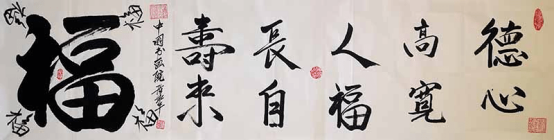 德高人長壽
心寬福自來
中國书画院
福